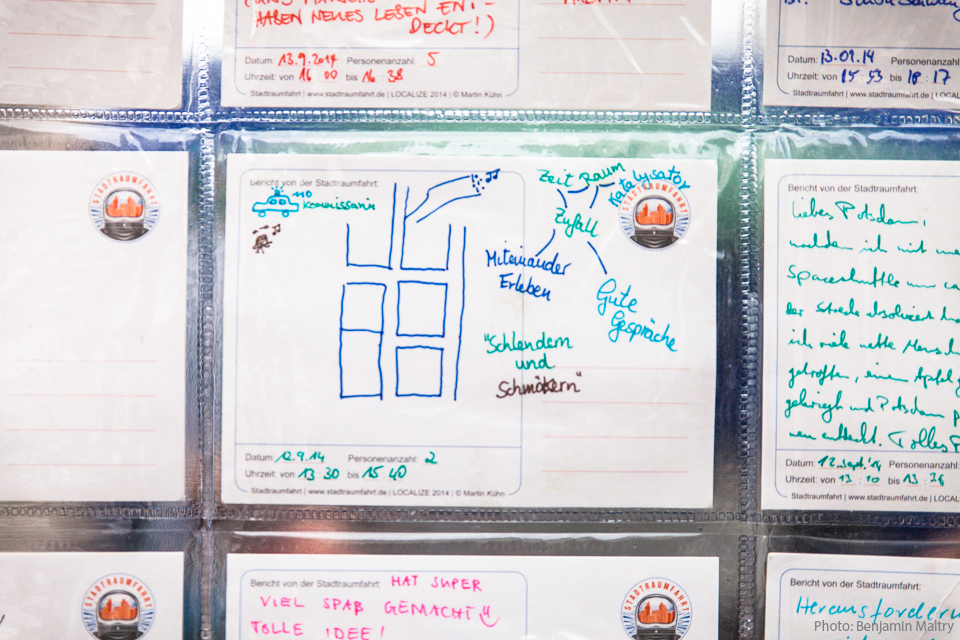 HABEN NEUES LEBEN ENT-
DECKT!)
Datum: 13.9.2014 Personenanzahl: 5
Uhrzeit: von 16 00 bis 16 38
Stadtraumfahrt | www.stadtraumfahrt.de | LOCALIZE 2014 | © Martin Kühn
Datum: 13.09.14 Personenanzahl:
Uhrzeit: von 15 53 bis 18 17
Stadtraumfahrt | www.stadtraumfahrt.de | LOCALIZE
STADTRAUMFAHRT
Bericht von der Stadtraumfahrt:
110
Kommissarin
Zeit Raum
Katalysator
STADTRAUMFAHRT
Zufall
Miteinander
Erleben
Gute
Gespräche
"Schlendern
und
Schmökern"
Datum: 12.9.14 Personenanzahl: 2
Uhrzeit: von 13 30 bis 15 40
Stadtraumfahrt | www.stadtraumfahrt.de | LOCALIZE 2014 | © Martin Kühn
Bericht von der Stadtraumfahrt:
Liebes Potsdam,
ich mit
Spaceshuttle
der Strecke absolviert
ich viele nette
getroffen, einen Apfel
und Potsdam
neu entdeckt. Tolles
Datum: 12. Sept. '14 Personenanzahl:
Uhrzeit: von 13 10 bis 13 36
Stadtraumfahrt | www.stadtraumfahrt.de | LOCALIZE
STADTRAUMFAHRT
Bericht von der Stadtraumfahrt: HAT SUPER
VIEL SPAß GEMACHT
TOLLE IDEE!
STADTRAUMFAHRT
Bericht von der Stadtraumfahrt:
Herausforderun
Photo: Benjamin Maltry